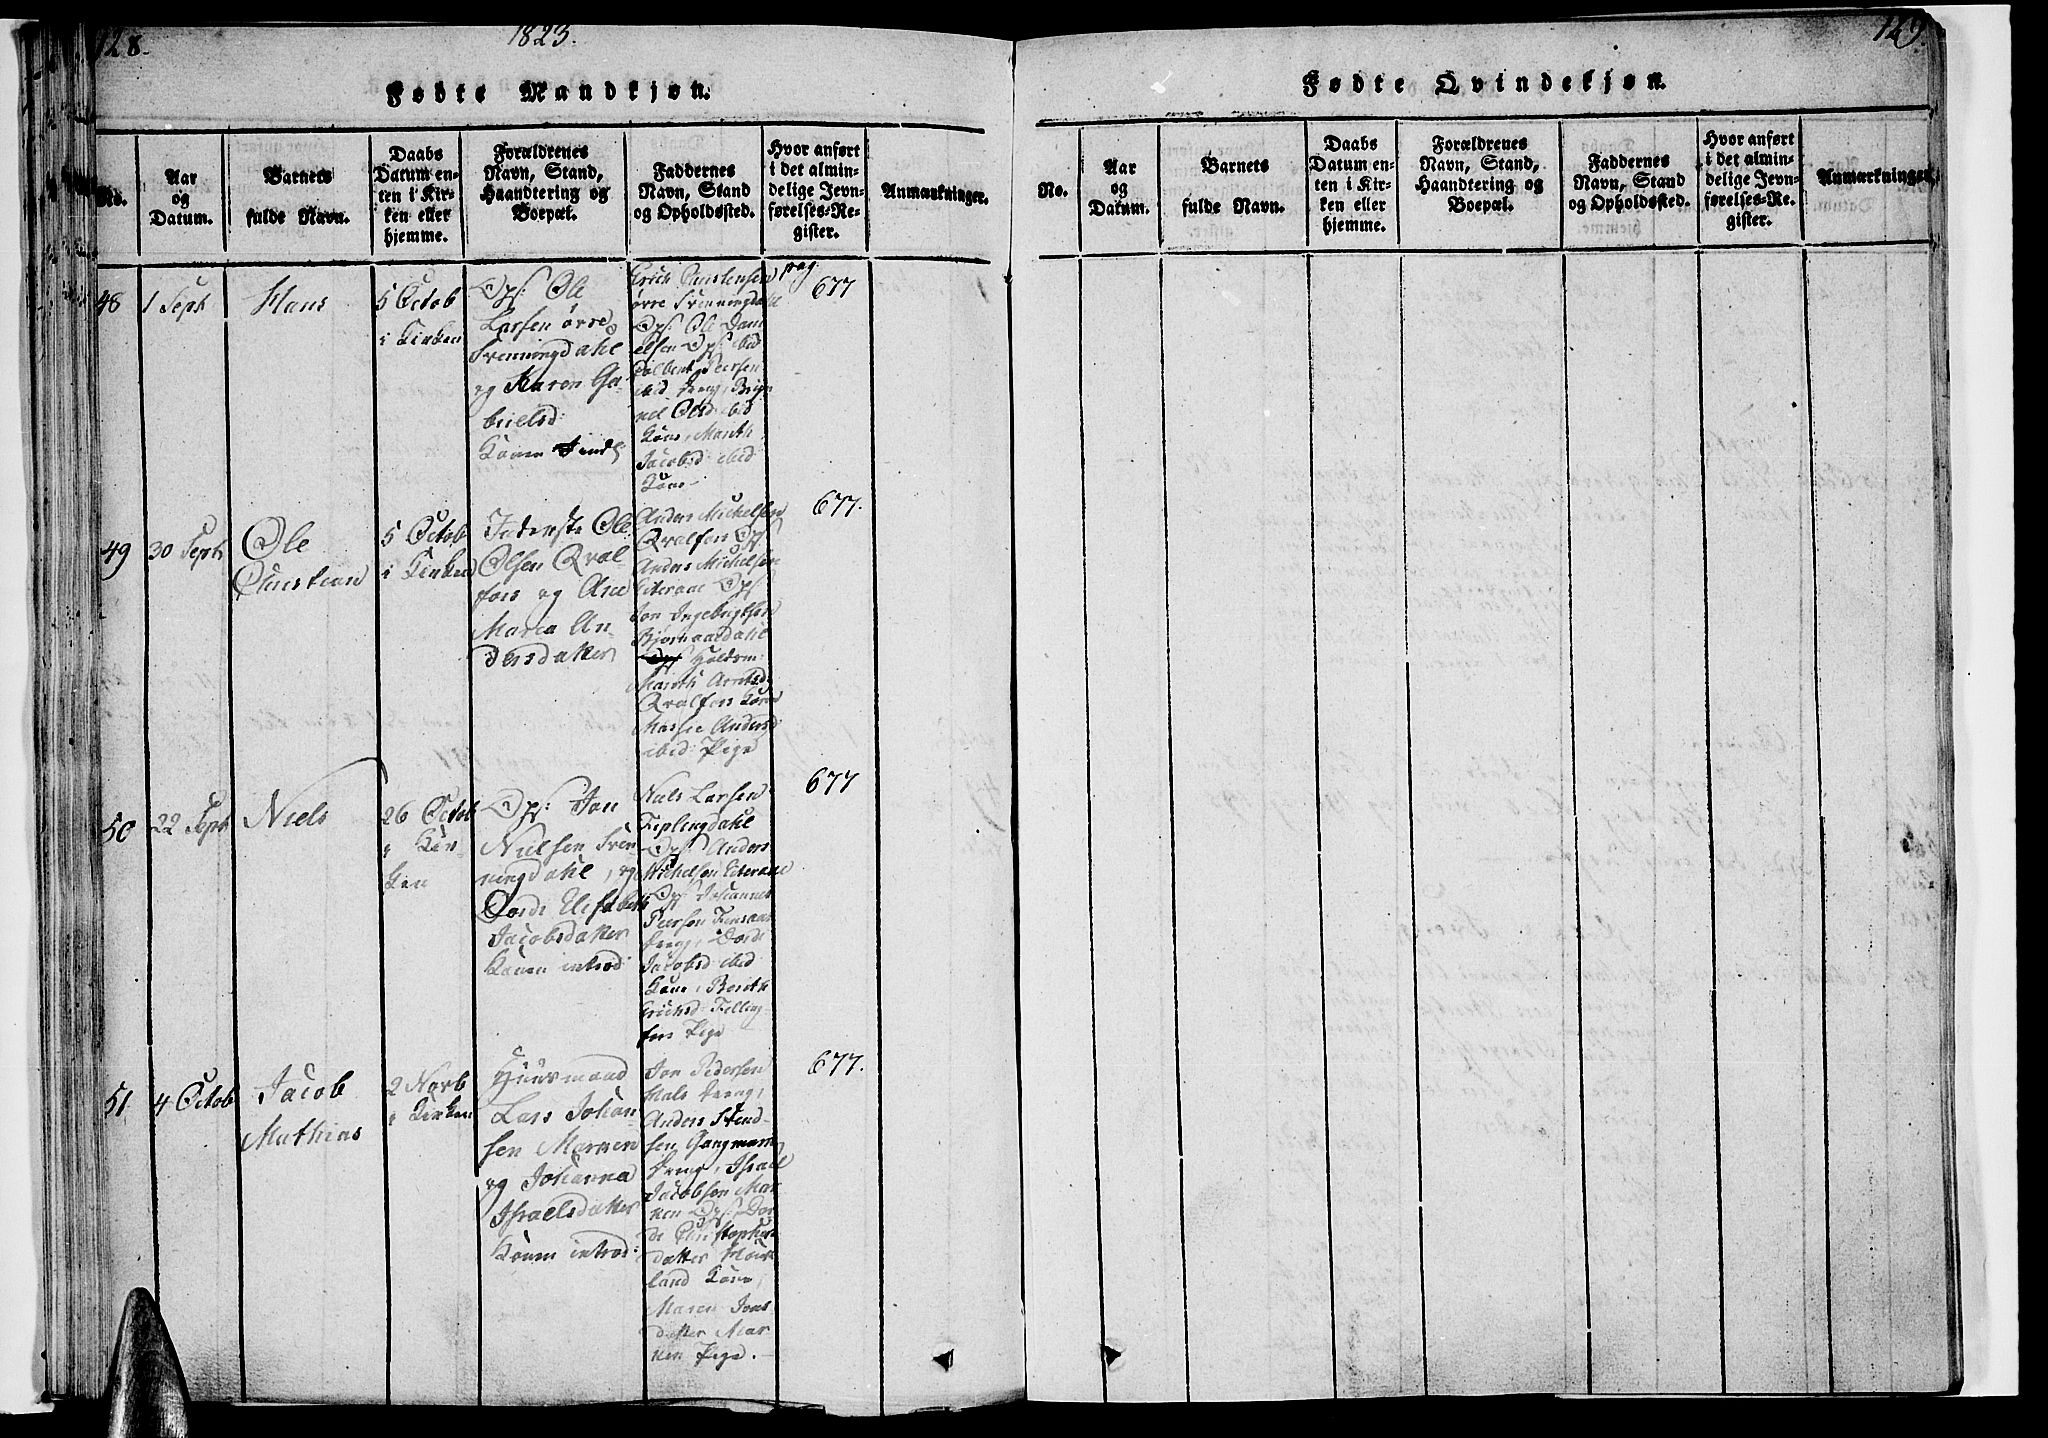 128.
1823.
Fødte Mandkjøn.
No.
Aar
og
Datum.
Barnets
fulde Navn.
Daabs
Datum en-
ten i Kir-
ken eller
hjemme.
Forældrenes
Navn, Stand,
Haandtering og
Boepæl.
Faddernes
Navn, Stand
og Opholdssted.
Hvor anført
i det almin-
delige Jevn-
førelses-Re-
gister.
Anmærkninger.
48
1 Sept
Hans
5 Octob
i Kirken
Ops: Ole
Larsen øvre
Svenningdahl
og Karen Ga-
brielsd:
Konen
Erich Christensen
øvre Svenningdahl
Ops: Ole Dani
elsen Ops: ibid
Peersen
ibid dreng,
Olsd: ibid
Kone, Mareth
Jacobsd: ibid
Kone
pag.
677
49
30 Sept
Ole
Christian
5 Octob
i Kirken
Inderste Ole
Olsen Qval
fors og Ane
Maria An-
dersdatter
Anders Michelsen
Qvalfors Ops
Anders Michelsen
Eiteraae Ops
Jon Ingebrigtsen
Bjornaaedahl
Mareth Arntsd:
Qvalfors Kone
Andersd:
ibid: Pige
677.
50
22 Sept
Niels
26 Octob
i Kir-
ken
Ops: Jon
Nielsen Sven-
ningdahl, og
Dorde Elisabeth
Jacobsdatter
Konen introd:
Niels Larsen
Ops Anders
Michelsen Eiteraae
Ops Johannes
Peersen
dreng, Dorde
Jacobsd: ibid
Kone, Bereth
Erichsd: Felling-
fors Pige
677
51
4 Octob
Jacob
Mathias
2 Novb
i Kirken
Huusmand
Lars Johan-
sen Marnen
og Johanna
Israelsdatter
Konen introd:
Jon Pedersen
Hals dreng,
Anders
sen
dreng, Israel
Jacobsen Mar
nen Ops: Dor
de Christophers
datter
land Kone,
Maren Jons
datter Mar
nen Pige.
677.
129.
Fødte Qvindekjøn.
No.
Aar
og
Datum.
Barnets
fulde Navn.
Daabs
Datum en-
ten i Kir-
ken eller
hjemme.
Forældrenes
Navn, Stand,
Haandtering og
Boepæl.
Faddernes
Navn, Stand
og Opholdssted.
Hvor anført
i det almin-
delige Jevn-
førelses-Re-
gister.
Anmærkninger.